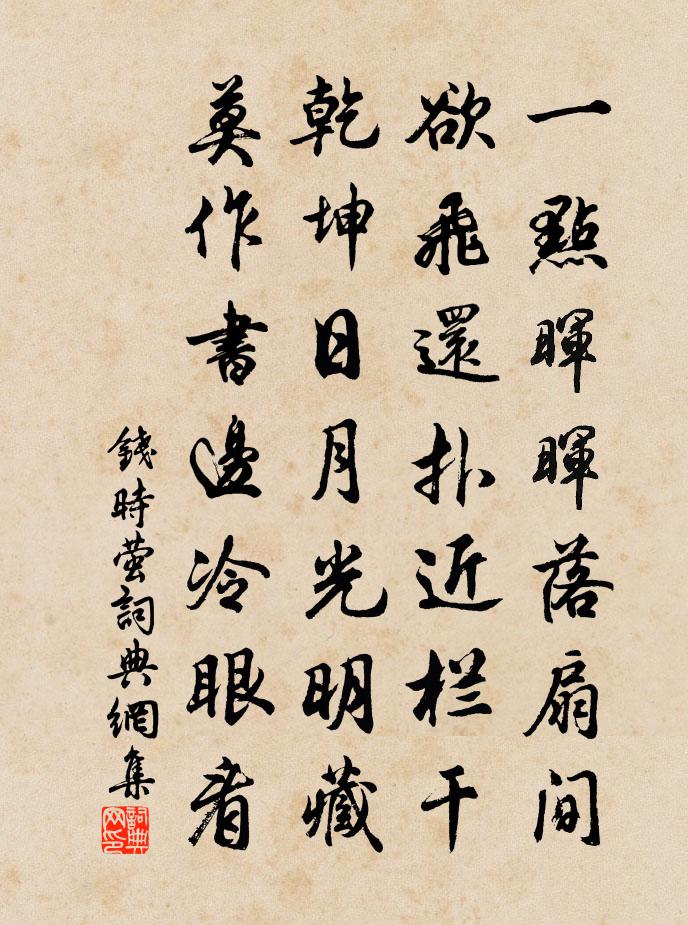 一點暉暉落扇间
欲飛還扑近栏干
乾坤日月光明藏
莫作書邊冷眼看
錢時萤詞典網集
詞典
网印